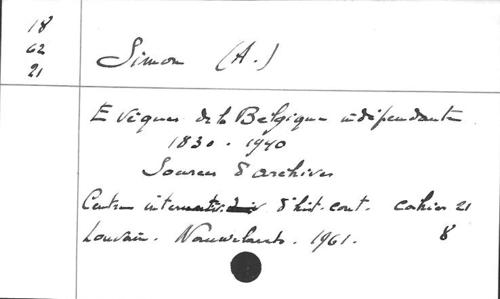 18
62
21
Simon (A.)
Evêques de la Belgique indépendante
1830 - 1940
Sources d'archives
Centre d'hist. cont. cahier 21
Louvain. Nauwelaerts. 1961. 8